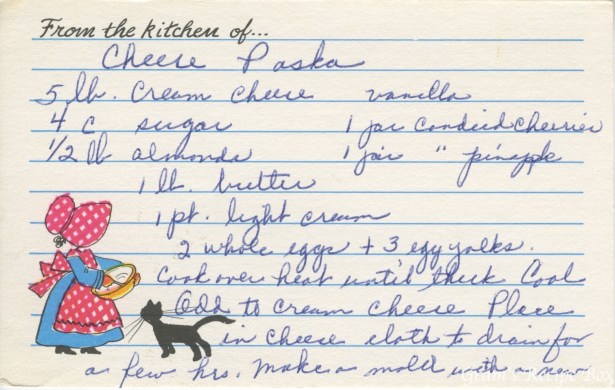 From the kitchen of...
Cheese Paska
5 lb. Cream Cheese vanilla
4 c sugar 1 jar candied cherries
1/2 lb almonds 1 jar " pinapple
1 lb. butter
1 pt. light cream
2 whole eggs + 3 egg yolks.
Cook over heat until thick Cool
Add to cream cheese Place
in cheese cloth to drain for
a few hrs. Make a mold with a new